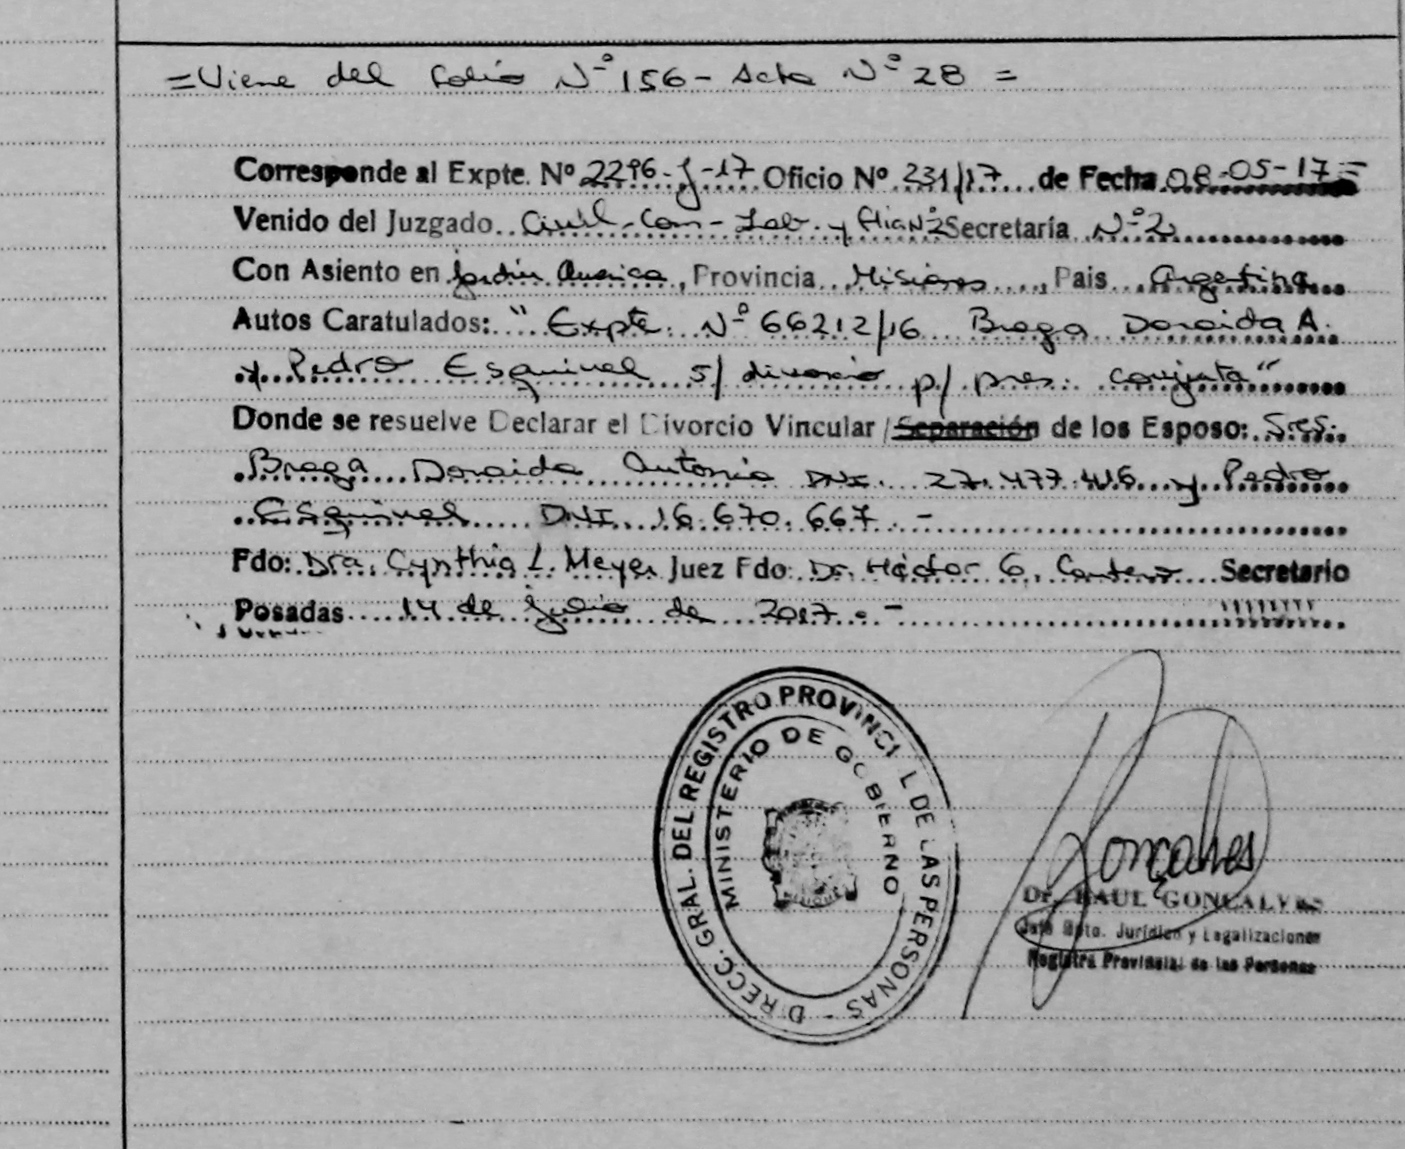 = Viene del folio Nº 156 - Acta Nº 28 =
Corresponde al Expte. Nº 2296-J-17 Oficio Nº 231/17 de Fecha 08-05-17=
Venido del Juzgado Civil-Com-Lab. y flia Nº2 Secretaría Nº 2
Con Asiento en Jardin America, Provincia Misiones, Pais Argentina
Autos Caratulados: "Expte. Nº 66212/16 Braga Doraida A.
y Pedro Esquivel s/ divorcio p/ pres. conjunta"
Donde se resuelve Declarar el Divorcio Vincular / Separación de los Esposo: Sres.
Braga Doraida Antonia DNI. 27.477.416 y Pedro
Esquivel DNI. 16.670.667. -
Fdo: Dra. Cynthia L. Meyer Juez Fdo: Dr. Héctor G. Cantero Secretario
Posadas 14 de julio de 2017. -
DIRECC. GRAL. DEL REGISTRO PROVINCI L DE LAS PERSONAS -
MINISTERIO DE GOBIERNO
Gonçalves
Dr. RAUL GONCALVES
Jefe Dpto. Jurídico y Legalizaciones
Registro Provincial de las Personas